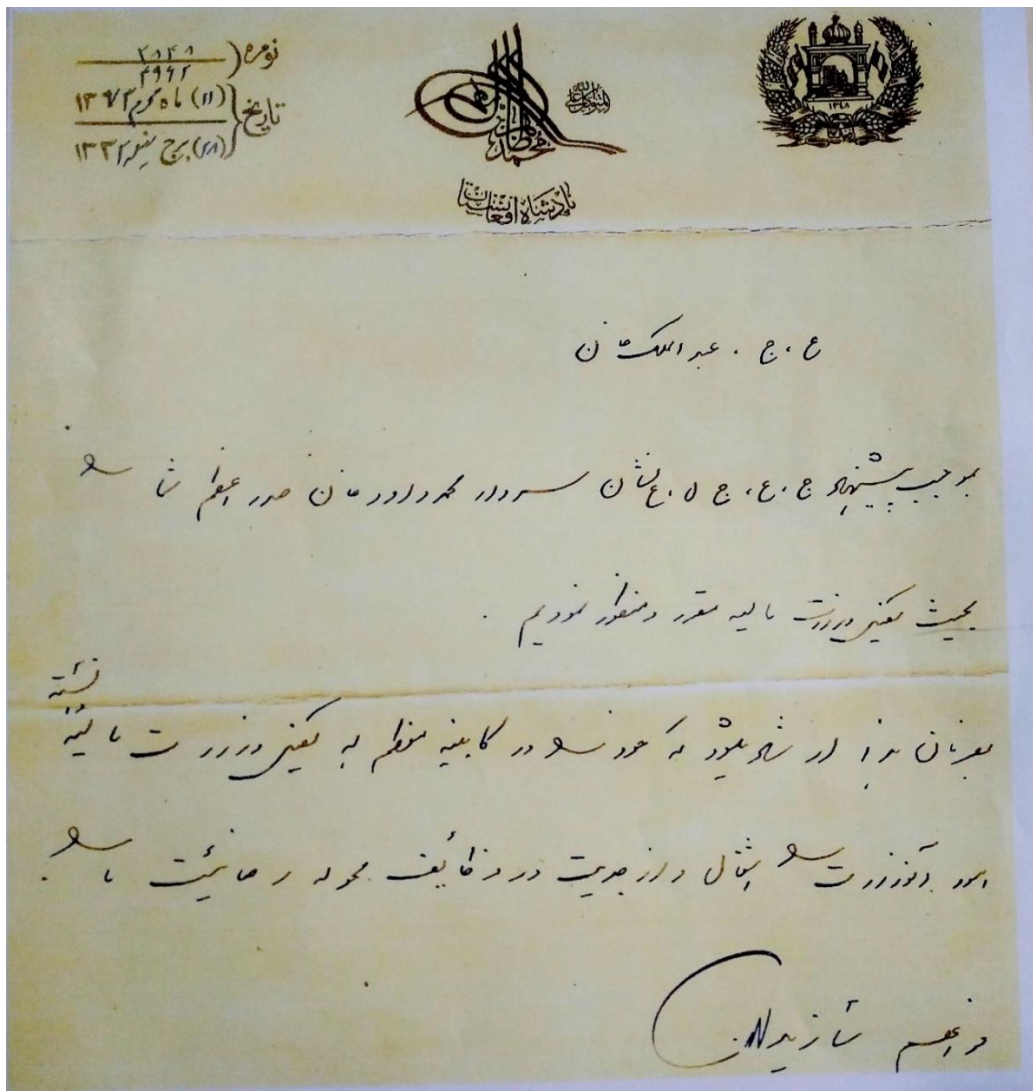 نومره (۲۸۴۸ / ۴۹۶۲
تاریخ { (۱۱) ماه محرم ۱۳۷۳
برج سنبله ۱۳۳۲
المتوکل علی الله
محمد ظاهر
پادشاه افغانستان
۱۳۴۸
ع . ج . عبدالملک خان
بموجب پیشنهاد ج . ع . ج ا . ع نشان سردار محمد داود خان صدراعظم شما را
بحیث کفیل وزارت مالیه مقرر و منظور نمودیم .
فرمان هذا شد که خود را در کابینه معظم به کفیلی وزارت مالیه
دانسته
امور آنوزارت را اشغال و از جدیت در وظایف محوله رضائیت ما را